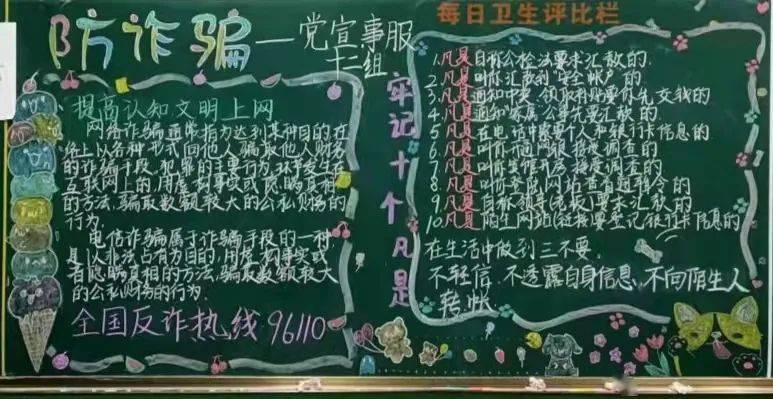 每日卫生评比栏
防诈骗—党宣事服
十二组
提高认知文明上网
网络诈骗通常指为达到某种目的在
络上以各种形式向他人骗取他人财务
的诈骗手段.犯罪的主要行为.环节发生在
互联网上的,用虚构事实或隐瞒真相
的方法,骗取数额较大的公私财务的
行为.
电信诈骗属于诈骗手段的一种
是以非法占有为目的,用虚构事实或
者隐瞒真相的方法,骗取数额较大
的公私财务的行为.
全国反诈热线96110
牢记十个凡是
1.凡是自称公检法要求汇款的.
2.凡是叫你汇款到"安全帐户"的
3.凡是通知中奖、领取补贴要你先交钱的
4.凡是通知"家属"出事先要汇款的.
5.凡是在电话中索要个人和银行卡信息的
6.凡是叫你开通网银接受调查的.
7.凡是叫你宾馆开房接受调查的.
8.凡是叫你登陆网站查看通缉令的
9.凡是自称领导(老板)要求汇款的.
10.凡是陌生网站(链接)要登记银行卡信息的
在生活中做到三不要.
不轻信.不透露自身信息.不向陌生人
转帐.